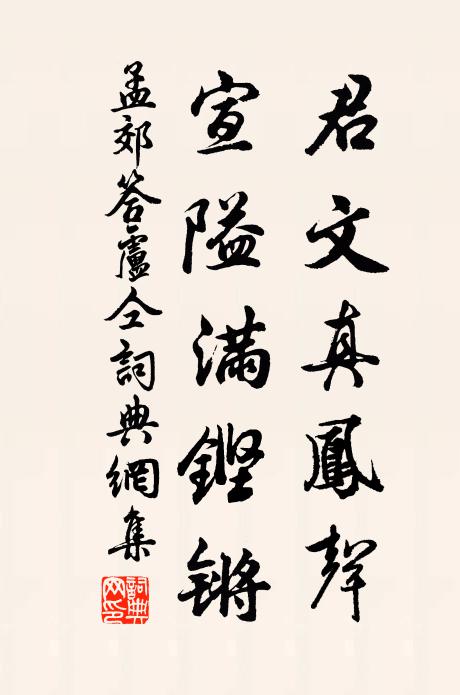 君文真鳳聲
宣隘滿鏗锵
孟郊答盧仝詞典網集
詞典網印